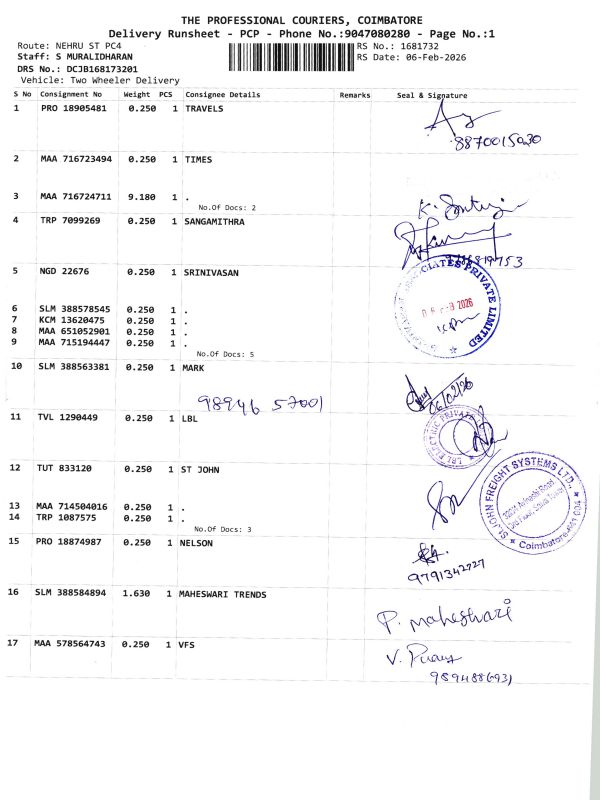 THE PROFESSIONAL COURIERS, COIMBATORE
Delivery Runsheet - PCP - Phone No.:9047080280 - Page No.:1
Route: NEHRU ST PC4
RS No.: 1681732
Staff: S MURALIDHARAN
RS Date: 06-Feb-2026
DRS No.: DCJB168173201
Vehicle: Two Wheeler Delivery
S No Consignment No Weight PCS Consignee Details Remarks Seal & Signature
1 PRO 18905481 0.250 1 TRAVELS
8870015030
2 MAA 716723494 0.250 1 TIMES
3 MAA 716724711 9.180 1 .
No.Of Docs: 2
4 TRP 7099269 0.250 1 SANGAMITHRA
5 NGD 22676 0.250 1 SRINIVASAN
2026
PRIVATE LIMITED
6 SLM 388578545 0.250 1 .
7 KCM 13620475 0.250 1 .
8 MAA 651052901 0.250 1 .
9 MAA 715194447 0.250 1 .
No.Of Docs: 5
10 SLM 388563381 0.250 1 MARK
98946 57001
06/02/26
11 TVL 1290449 0.250 1 LBL
LBL ELECTRIC PRIVATE
12 TUT 833120 0.250 1 ST JOHN
ST. JOHN FREIGHT SYSTEMS LTD.
Coimbatore-641 004
13 MAA 714504016 0.250 1 .
14 TRP 1087575 0.250 1 .
No.Of Docs: 3
15 PRO 18874987 0.250 1 NELSON
9791342727
16 SLM 388584894 1.630 1 MAHESWARI TRENDS
P. maheshwari
17 MAA 578564743 0.250 1 VFS
V.
9894886931